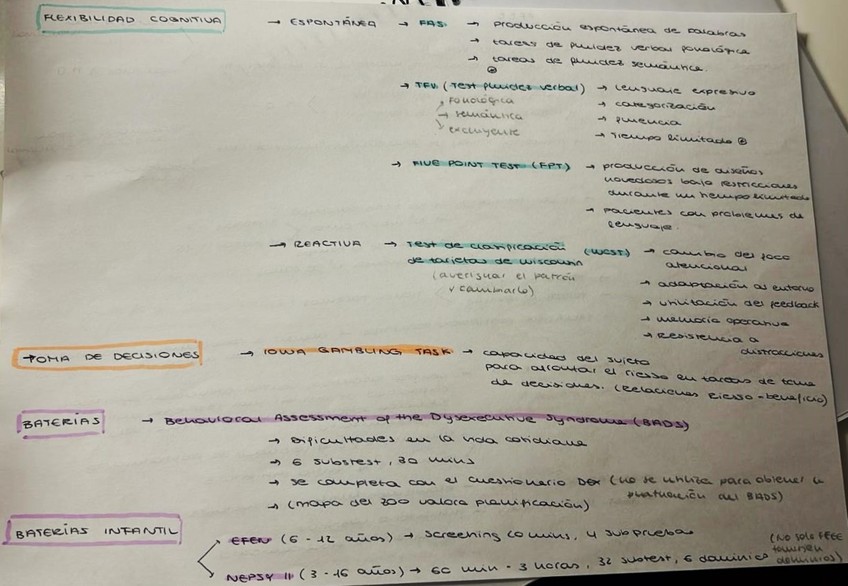 FLEXIBILIDAD COGNITIVA → ESPONTÁNEA → FAS → producción espontánea de palabras
→ tareas de fluidez verbal fonológica
→ tareas de fluidez semántica.
→ TFV (Test fluidez verbal) → Lenguaje expresivo
fonológica → categorización
→ semántica → fluencia
excluyente → Tiempo limitado
→ FIVE POINT TEST (FPT) → producción de diseños
novedosos bajo restricciones
durante un tiempo limitado
→ pacientes con problemas de
lenguaje.
→ REACTIVA → Test de clasificación (WCST) → cambio del foco
de tarjetas de Wisconsin atencional
(averiguar el patrón → adaptación al entorno
y cambiarlo) → utilización del feedback
→ memoria operativa
→ Resistencia a
distracciones
TOMA DE DECISIONES → IOWA GAMBLING TASK → capacidad del sujeto
para afrontar el riesgo en tareas de toma
de decisiones. (Relaciones Riesgo-beneficio)
BATERÍAS → Behavioral Assessment of the Dysexecutive Syndrome (BADS)
→ Dificultades en la vida cotidiana
→ 6 subtest, 30 mins
→ se completa con el cuestionario DEX (no se utiliza para obtener la
puntuación del BADS)
→ (mapa del zoo valora planificación)
BATERÍAS INFANTIL
EFEN (6 - 12 años) → Screening 60 mins, 4 subpruebas
(No solo FFEE
también
dominios)
NEPSY II (3 - 16 años) → 60 min - 3 horas, 32 subtest, 6 dominios